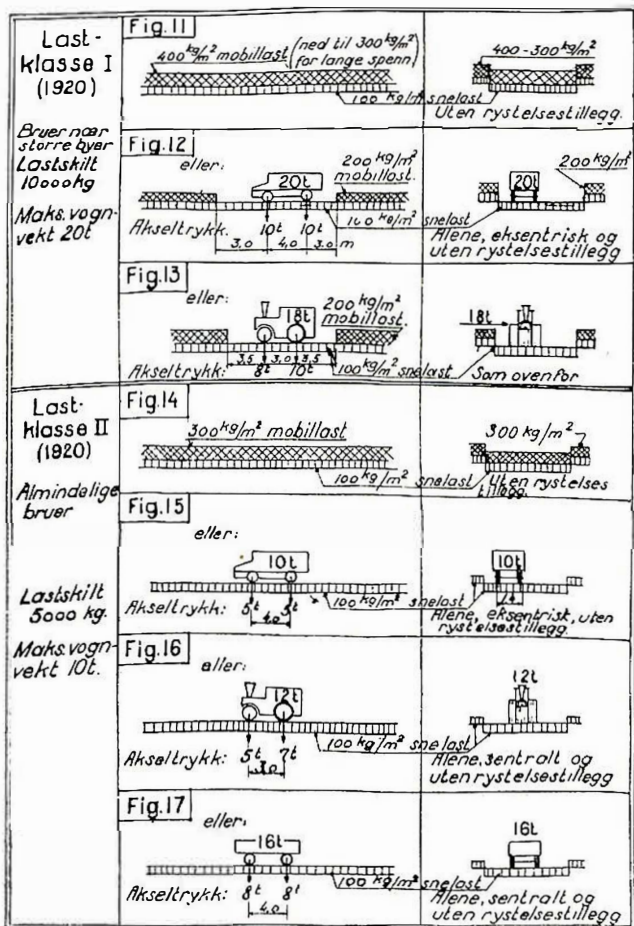 Last-
klasse I
(1920)
Bruer nær
større byer
Lastskilt
10000kg
Maks. vogn-
vekt 20t
Fig.11
400 kg/m² mobillast (ned til 300 kg/m² for lange spenn)
100 kg/m² snelast
400-300 kg/m²
Uten rystelsestillegg.
Fig.12
eller:
20t
200 kg/m²
mobillast.
100 kg/m² snelast
Akseltrykk: 10t 10t
3,0 4,0 3,0 m
20t
200 kg/m²
Alene, eksentrisk og
uten rystelsestillegg
Fig.13
eller:
18t
200 kg/m²
mobillast.
3,5 3,0 3,5
100 kg/m² snelast
Akseltrykk: 8t 10t
18t
Som ovenfor
Last-
klasse II
(1920)
Almindelige
bruer
Lastskilt
5000 kg.
Maks. vogn-
vekt 10t.
Fig.14
300 kg/m² mobillast
100 kg/m² snelast
300 kg/m²
Uten rystelses
tillegg.
Fig.15
eller:
10t
100 kg/m² snelast
Akseltrykk: 5t 5t
4,0
10t
Alene, eksentrisk, uten
rystelsestillegg.
Fig.16
aller:
12t
100 kg/m² snelast
Akseltrykk: 5t 7t
3,0
12t
Alene, sentralt og
uten rystelsestillegg
Fig.17
eller:
16t
100 kg/m² snelast
Akseltrykk: 8t 8t
4,0
16t
Alene, sentralt og
uten rystelsestillegg